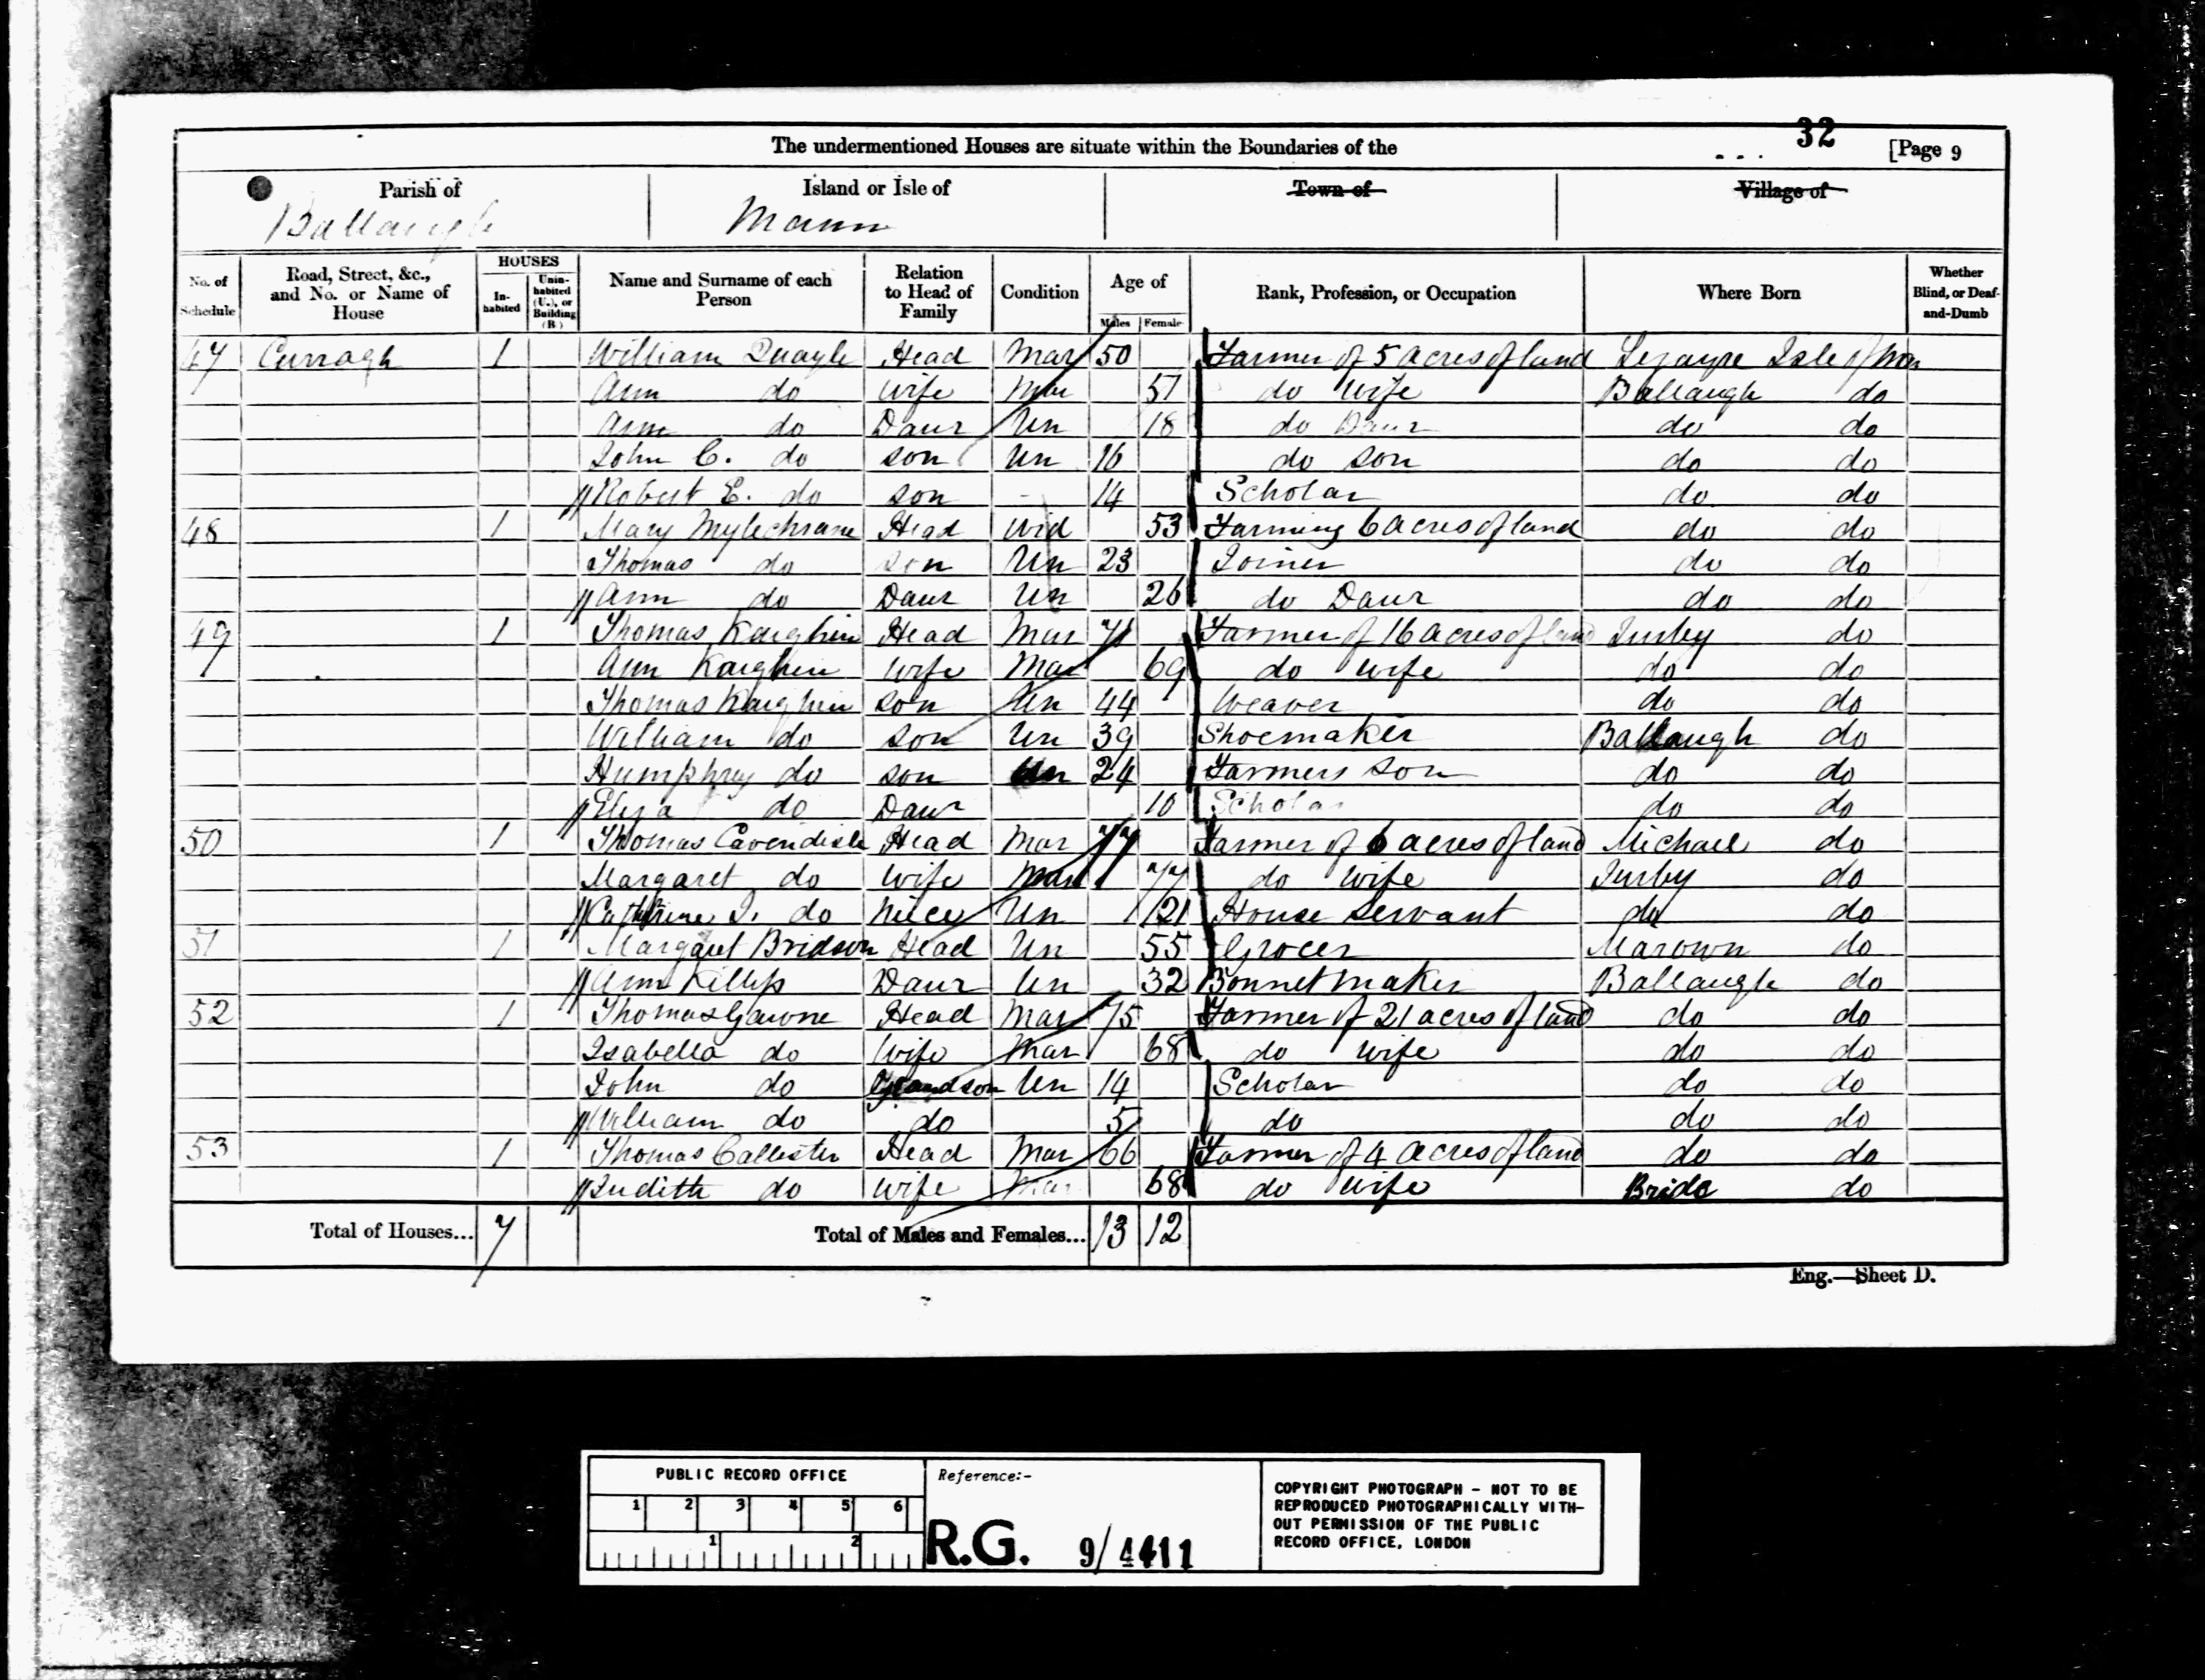 32
The undermentioned Houses are situate within the Boundaries of the [Page 9
Parish of Island or Isle of Town of Village of
Ballaugh Mann
No. of Schedule Road, Street, &c., and No. or Name of House HOUSES Inhabited Uninhabited (U.), or Building (B.) Name and Surname of each Person Relation to Head of Family Condition Age of Males Females Rank, Profession, or Occupation Where Born Whether Blind, or Deaf-and-Dumb
47 Curragh 1 William Quayle Head Mar 50 Farmer of 5 acres of land Lezayre Isle of Man
Ann do Wife Mar 51 do Wife Ballaugh do
Ann do Daur Un 18 do Daur do do
John C. do son Un 16 do son do do
Robert E. do son - 14 Scholar do do
48 1 Mary Mylechrane Head Wid 53 Farming 6 acres of land do do
Thomas do son Un 23 Joiner do do
Ann do Daur Un 26 do Daur do do
49 1 Thomas Kaighin Head Mar 71 Farmer of 16 acres of land Jurby do
Ann Kaighin Wife Mar 69 do wife do do
Thomas Kaighin son Un 44 Weaver do do
William do son Un 39 Shoemaker Ballaugh do
Humphrey do son Un 24 Farmers son do do
Eliza do Daur 10 Scholar do do
50 1 Thomas Cavendish Head Mar 77 Farmer of 6 acres of land Michael do
Margaret do Wife Mar 77 do wife Jurby do
Cathrine J. do Niece Un 21 House servant do do
51 1 Margaret Bridson Head Un 55 Grocer Marown do
Ann Killip Daur Un 32 Bonnetmaker Ballaugh do
52 1 Thomas Gawne Head Mar 75 Farmer of 21 acres of land do do
Isabella do Wife Mar 68 do wife do do
John do Grandson Un 14 Scholar do do
William do do 5 do do do
53 1 Thomas Callister Head Mar 66 Farmer of 4 acres of land do do
Judith do Wife Mar 68 do wife Bride do
Total of Houses... 7 Total of Males and Females... 13 12
Eng.—Sheet D.
PUBLIC RECORD OFFICE
1 2 3 4 5 6
1 2
Reference:-
R.G. 9/4411
COPYRIGHT PHOTOGRAPH - NOT TO BE
REPRODUCED PHOTOGRAPHICALLY WITH-
OUT PERMISSION OF THE PUBLIC
RECORD OFFICE, LONDON